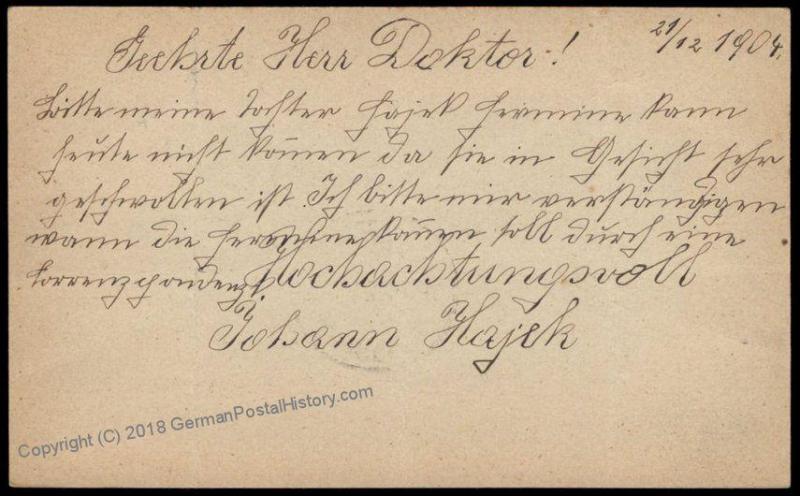 21/12 1904.
Geehrte Herr Doktor!
Bitte meine Tochter Hajek Hermine kann
heute nicht kom̄en da sie in Gesicht sehr
geschwollen ist. Ich bitte mir verständigen
wann die Hermine kom̄en soll durch eine
Korrenzpondenz. Hochachtungsvoll
Johann Hajek
Copyright (C) 2018 GermanPostalHistory.com